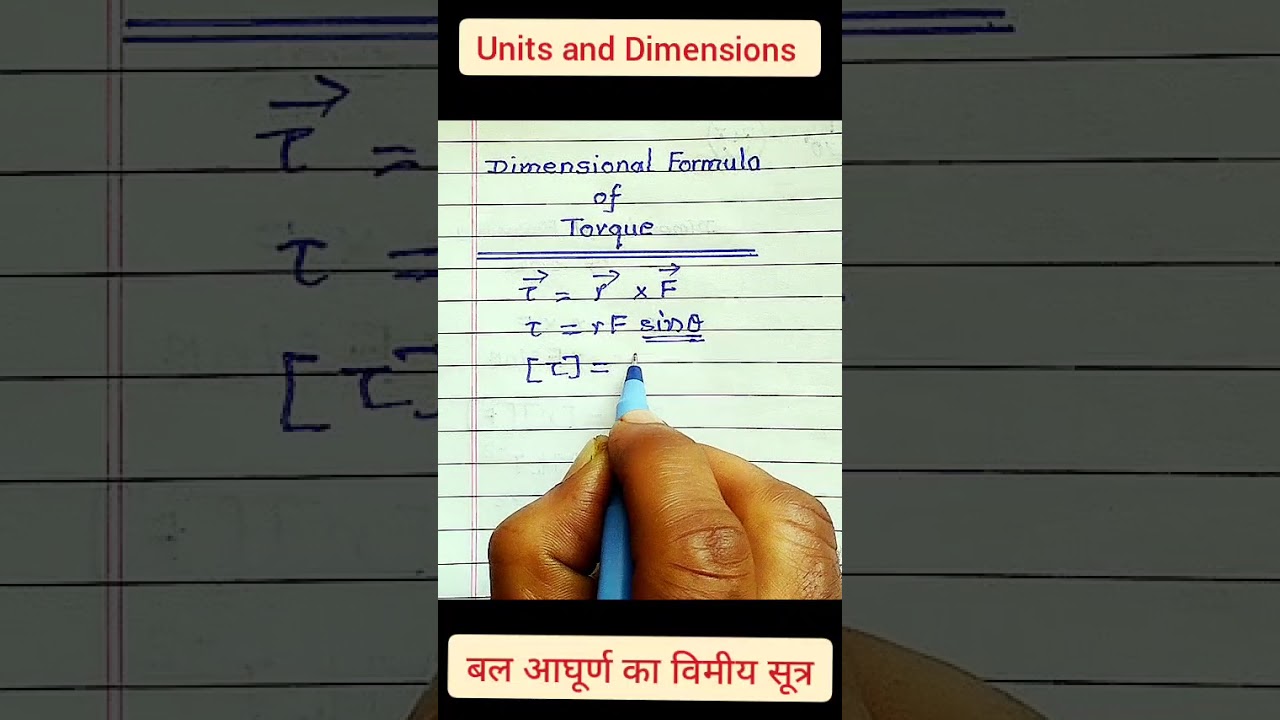 Units and Dimensions
Dimensional Formula
of
Torque
τ⃗ = r⃗ × F⃗
τ = rF sinθ
[τ] =
बल आघूर्ण का विमीय सूत्र